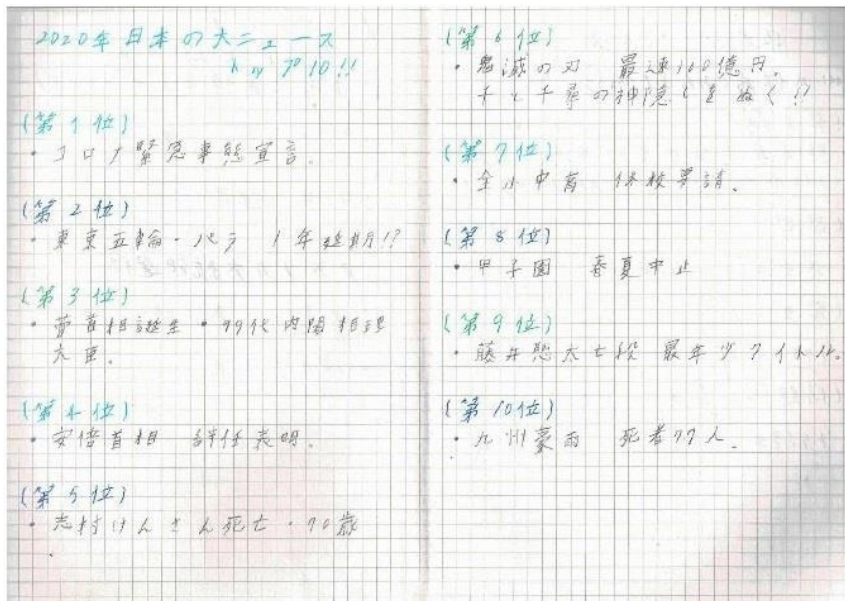 2020年 日本の大ニュース
トップ10!!
(第1位)
・コロナ緊急事態宣言.
(第2位)
・東京五輪・パラ 1年延期!?
(第3位)
・菅首相誕生・99代内閣総理
大臣.
(第4位)
・安倍首相 辞任表明.
(第5位)
・志村けんさん死亡・70歳
(第6位)
・鬼滅の刃 最速100億円.
千と千尋の神隠しをぬく!?
(第7位)
・全小中高 休校要請.
(第8位)
・甲子園 春夏中止
(第9位)
・藤井聡太七段 最年少タイトル.
(第10位)
・九州豪雨 死者77人.